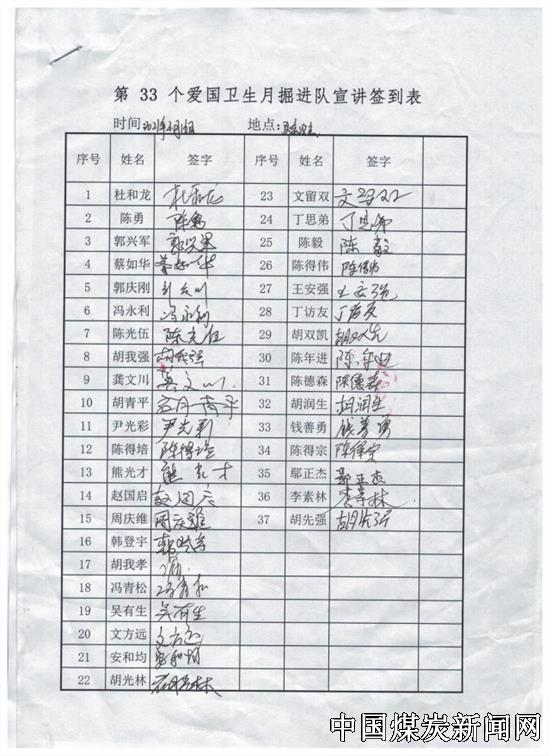 第 33 个爱国卫生月掘进队宣讲签到表
时间: 地点:
序号 姓名 签字 序号 姓名 签字
1 杜和龙 杜和龙 23 文留双 文留双
2 陈勇 陈勇 24 丁思弟 丁思弟
3 郭兴军 郭兴军 25 陈毅 陈毅
4 蔡如华 蔡如华 26 陈得伟 陈得伟
5 郭庆刚 27 王安强 王安强
6 冯永利 冯永利 28 丁访友 丁访友
7 陈光伍 陈光伍 29 胡双凯
8 胡我强 胡我强 30 陈年进
9 龚文川 龚文川 31 陈德森 陈德森
10 胡青平 32 胡润生 胡润生
11 尹光彩 33 钱善勇 钱善勇
12 陈得培 陈得培 34 陈得宗 陈得宗
13 熊光才 熊光才 35 鄢正杰 鄢正杰
14 赵国启 36 李素林 李素林
15 周庆维 周庆维 37 胡先强 胡先强
16 韩登宇
17 胡我孝
18 冯青松 冯青松
19 吴有生 吴有生
20 文方远 文方远
21 安和均 安和均
22 胡光林
中国煤炭新闻网